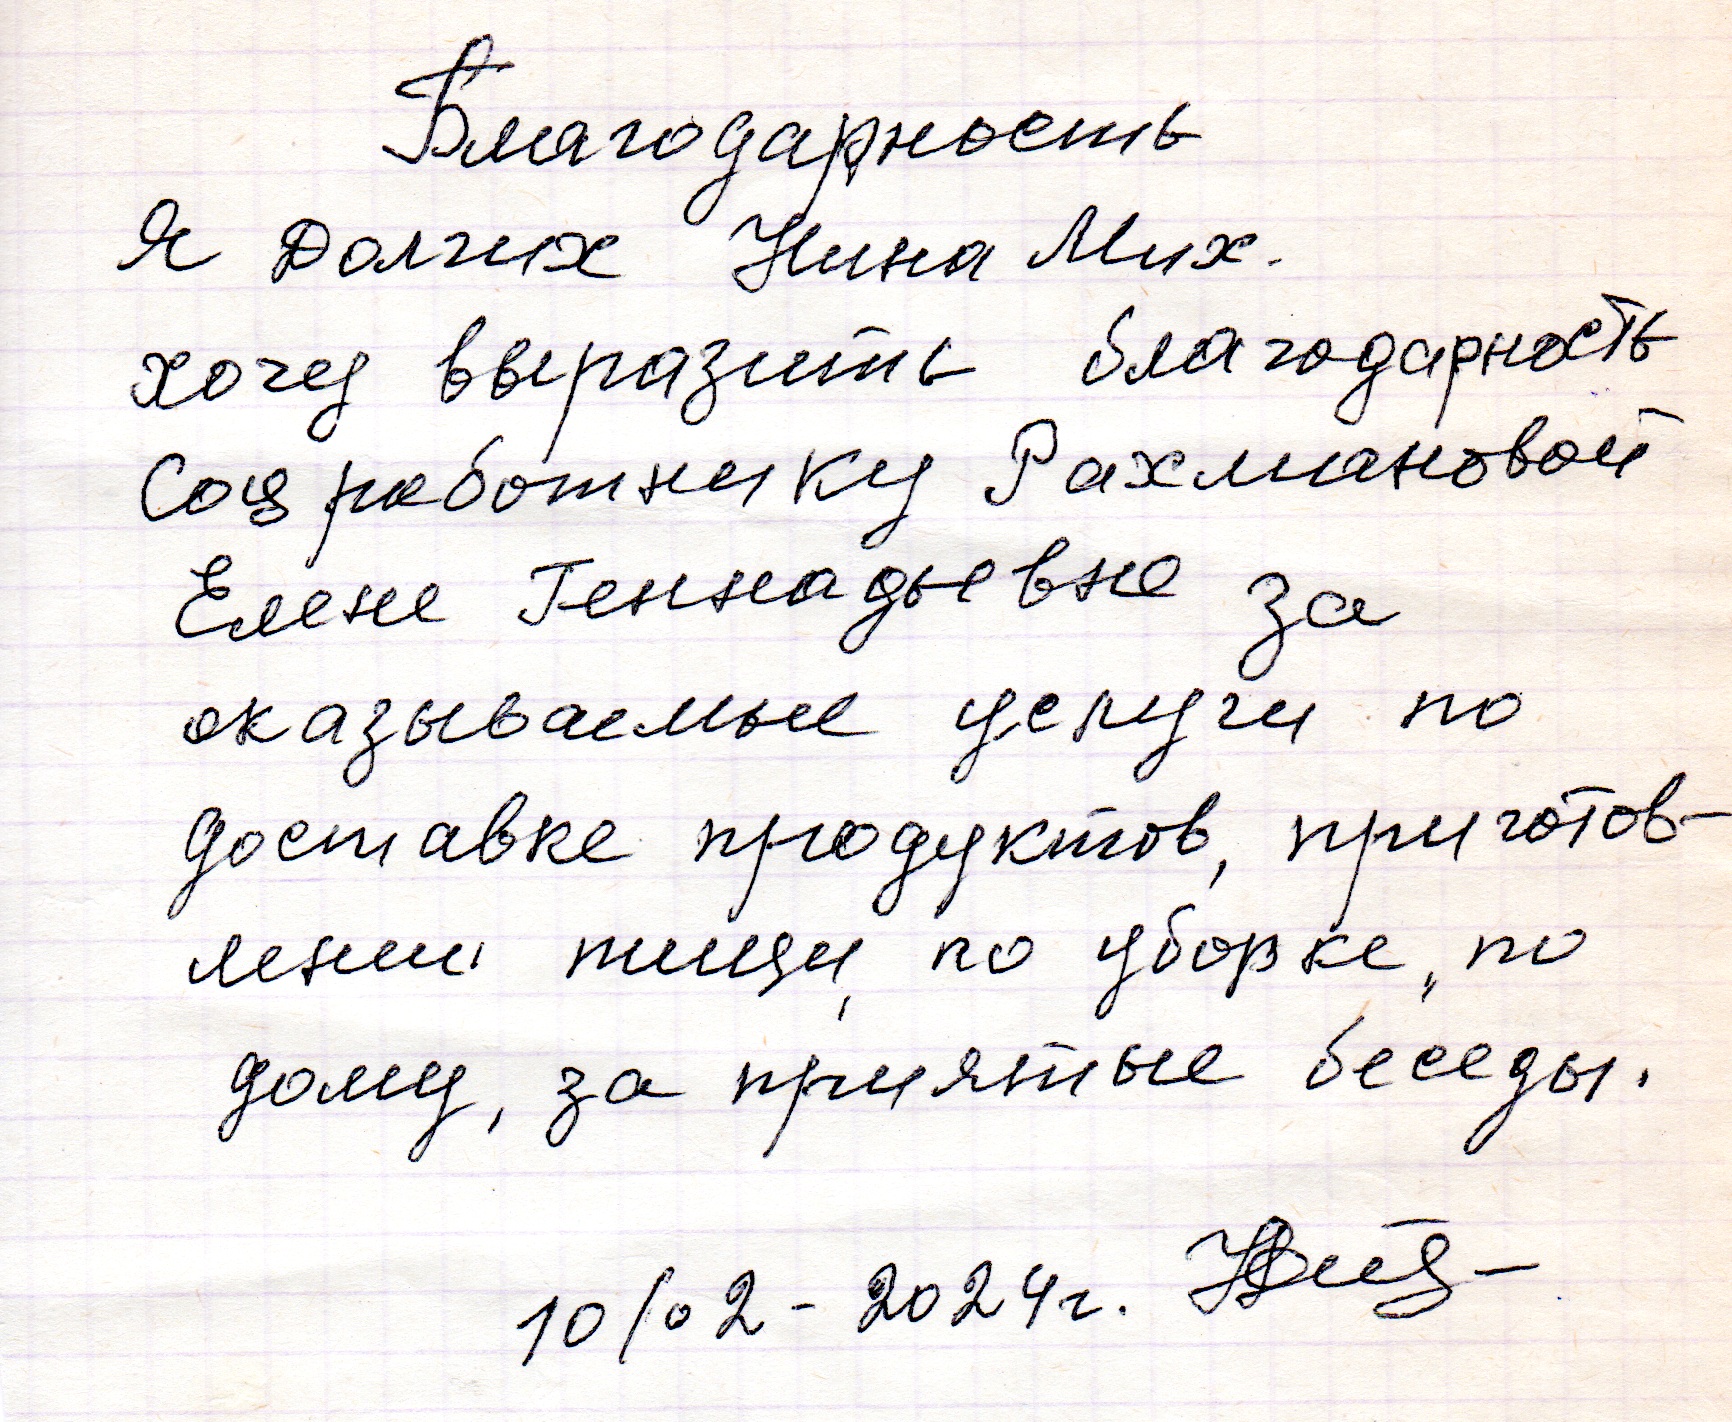 Благодарность
Я Долгих Нина Мих.
хочу выразить благодарность
Соцработнику Рахмановой
Елене Геннадьевне за
оказываемые услуги по
доставке продуктов, приготов-
лении пищи, по уборке, по
дому, за приятные беседы.
10/02-2024г.